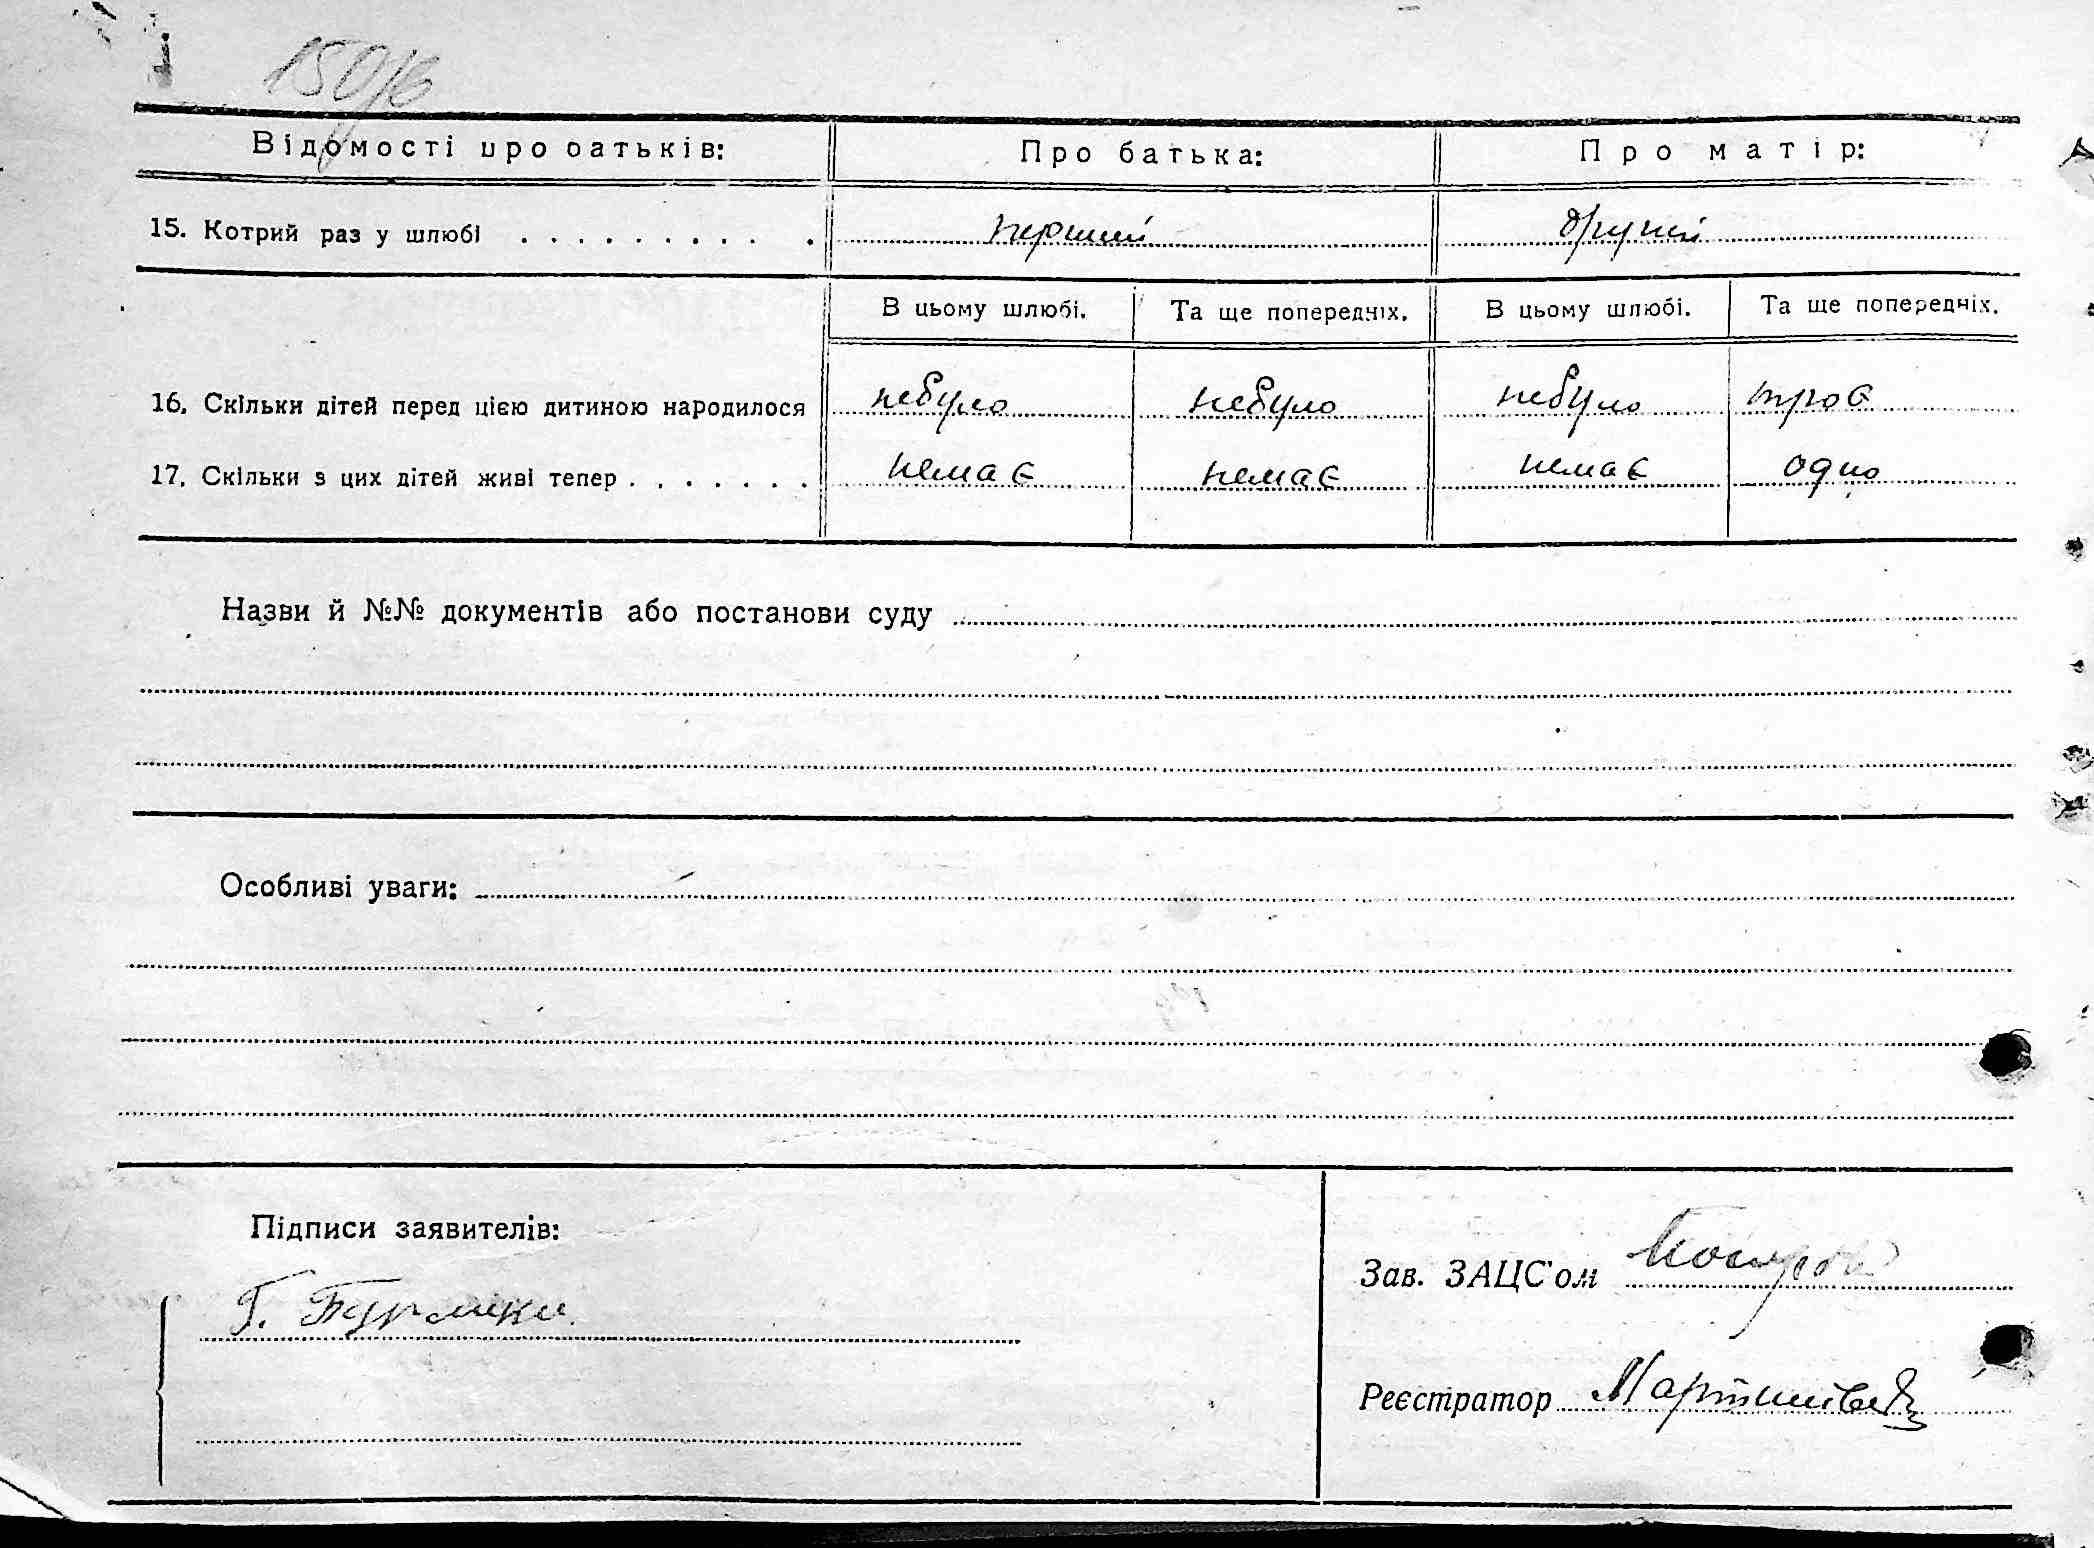 150/6
Відомості про батьків: Про батька: Про матір:
15. Котрий раз у шлюбі . . . . . . . . . . . перший другий
В цьому шлюбі. Та ще попередніх. В цьому шлюбі. Та ще попередніх.
16. Скільки дітей перед цією дитиною народилося небуло небуло небуло троє
17. Скільки з цих дітей живі тепер . . . . . . . немає немає немає одно
Назви й №№ документів або постанови суду
Особливі уваги:
Підписи заявителів:
Зав. ЗАЦС'ом
Г.
Реєстратор